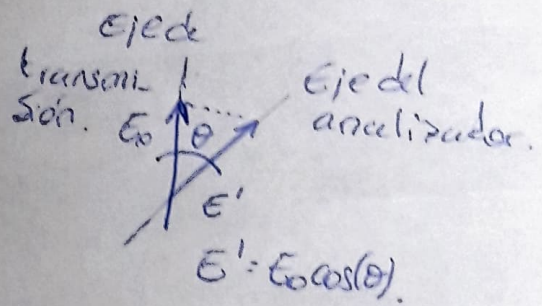 Eje de
transmi-
sión.
Eje del
analizador.
E₀
θ
E'
E' = E₀ cos(θ).